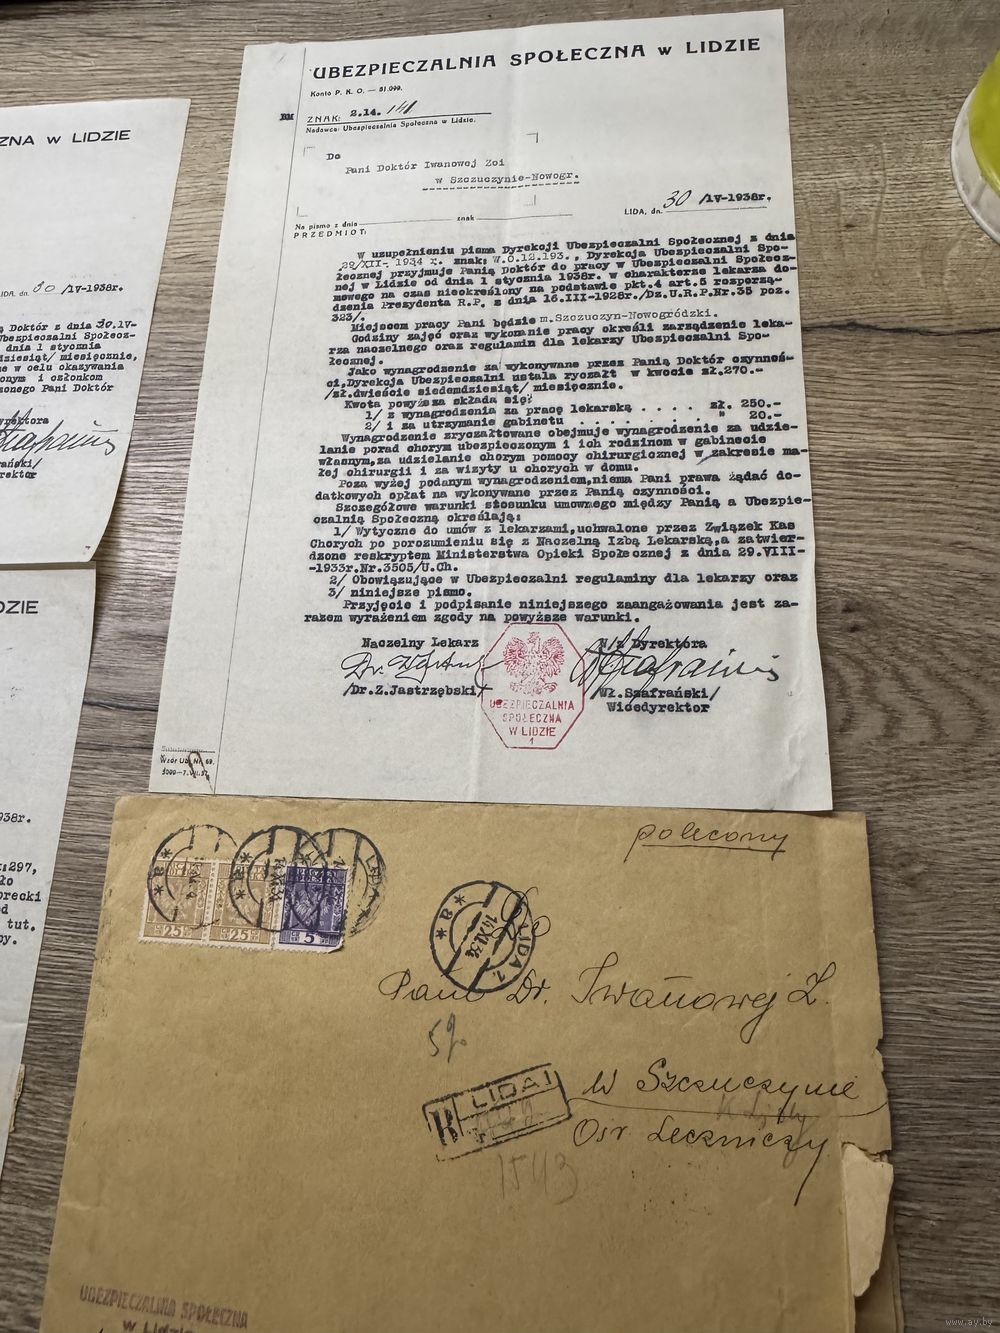 UBEZPIECZALNIA SPOŁECZNA w LIDZIE
Konto P. K. O. — 81.099.
BM
ZNAK: 2.14. 141
Nadawca: Ubezpieczalnia Społeczna w Lidzie.
Do
Pani Doktór Iwanowej Zoi
w Szczuczynie-Nowogr.
LIDA, dn. 30 /IV-1938r.
Na pismo z dnia znak
PRZEDMIOT:
W uzupełnieniu pisma Dyrekcji Ubezpieczalni Społecznej z dnia
29/XII- 1934 r. znak: W.O.12.193., Dyrekcja Ubezpieczalni Spo-
łecznej przyjmuje Panią Doktór do pracy w Ubezpieczalni Społecz-
nej w Lidzie od dnia 1 stycznia 1938r. w charakterze lekarza do-
mowego na czas nieokreślony na podstawie pkt.4 art.5 rozporzą-
dzenia Prezydenta R.P. z dnia 16.III-1928r./Dz.U.R.P.Nr.35 poz.
323/.
Miejscem pracy Pani będzie m.Szczuczyn-Nowogródzki.
Godziny zajęć oraz wykonanie pracy określi zarządzenie leka-
rza naczelnego oraz regulamin dla lekarzy Ubezpieczalni Spo-
łecznej.
Jako wynagrodzenie za wykonywane przez Panią Doktór czynnoś-
ci,Dyrekcja Ubezpieczalni ustala ryczałt w kwocie zł.270.-
/zł.dwieście siedemdziesiąt/ miesięcznie.
Kwota powyższa składa się:
1/ z wynagrodzenia za pracę lekarską . . . . . zł. 250.-
2/ i za utrzymanie gabinetu . . . . . . . . " 20.-
Wynagrodzenie zryczałtowane obejmuje wynagrodzenie za udzie-
lanie porad chorym ubezpieczonym i ich rodzinom w gabinecie
własnym,za udzielanie chorym pomocy chirurgicznej w zakresie ma-
łej chirurgii i za wizyty u chorych w domu.
Poza wyżej podanym wynagrodzeniem,niema Pani prawa żądać do-
datkowych opłat na wykonywane przez Panią czynności.
Szczegółowe warunki stosunku umownego między Panią a Ubezpie-
czalnią Społeczną określają:
1/ Wytyczne do umów z lekarzami,uchwalone przez Związek Kas
Chorych po porozumieniu się z Naczelną Izbą Lekarską,a zatwier-
dzone reskryptem Ministerstwa Opieki Społecznej z dnia 29.VIII-
-1933r.Nr.3505/U.Ch.
2/ Obowiązujące w Ubezpieczalni regulaminy dla lekarzy oraz
3/ niniejsze pismo.
Przyjęcie i podpisanie niniejszego zaangażowania jest za-
razem wyrażeniem zgody na powyższe warunki.
Naczelny Lekarz
/Dr.Z.Jastrzębski/
w/z Dyrektóra
/Wł.Szafrański/
Wicedyrektor
UBEZPIECZALNIA
SPOŁECZNA
W LIDZIE
1
Wzór Ub. Nr. 69.
5000—7.VII.37.
ZNA w LIDZIE
LIDA, dn. 30 /IV-1938r.
Doktór z dnia 30.IV-
Ubezpieczalni Społecz-
dnia 1 stycznia
dziesiąt/ miesięcznie,
e w celu okazywania
onym i członkom
zonego Pani Doktór
yrektora
rański/
rektor
DZIE
938r.
:297,
ło
brecki
d
tut.
by.
polecony
25 25 5
LIDA 1
14.XI.34
Do
Pani Dr. Iwanowej Z.
59
w Szczuczynie
Ośr Leczniczy
R LIDA 1
1543
UBEZPIECZALNIA SPOŁECZNA
w Lidzie
www.ay.by